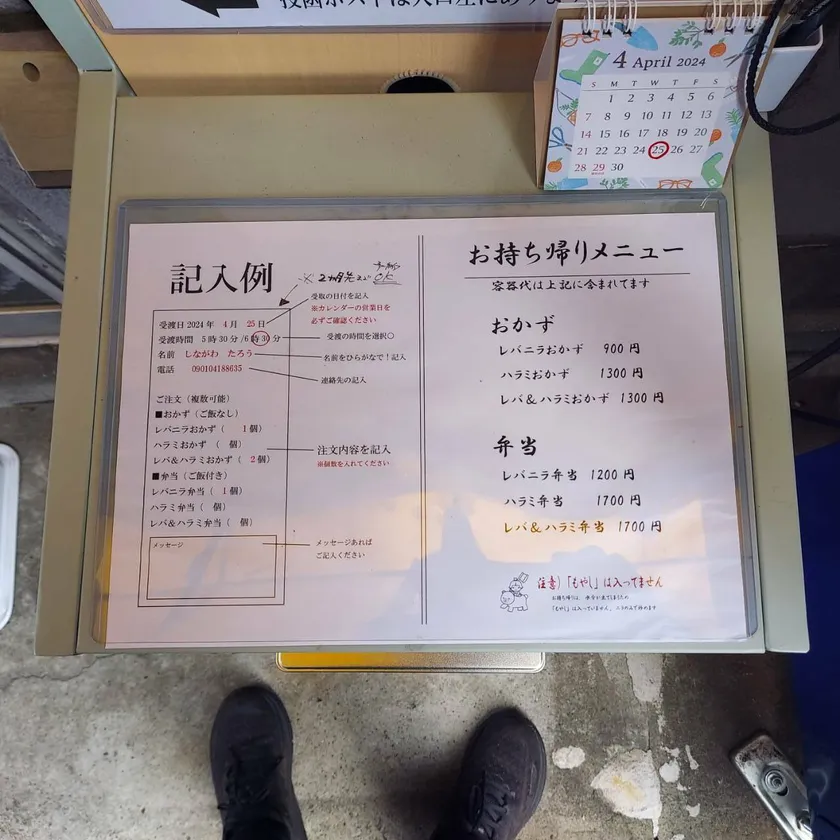 4 April 2024
S M T W T F S
1 2 3 4 5 6
7 8 9 10 11 12 13
14 15 16 17 18 19 20
21 22 23 24 25 26 27
28 29 30
記入例
※2ヶ月先まで
OK
受取の日付を記入
※カレンダーの営業日を
必ずご確認ください
受渡日 2024年 4月 25日
受渡時間 5時30分/6時30分
受渡の時間を選択○
名前 しながわ たろう
名前をひらがなで!記入
電話 090104188635
連絡先の記入
ご注文(複数可能)
■おかず(ご飯なし)
レバニラおかず( 1個)
ハラミおかず( 個)
レバ&ハラミおかず( 2個)
注文内容を記入
※個数を入れてください
■弁当(ご飯付き)
レバニラ弁当( 1個)
ハラミ弁当( 個)
レバ&ハラミ弁当( 個)
メッセージ
メッセージあれば
ご記入ください
お持ち帰りメニュー
容器代は上記に含まれてます
おかず
レバニラおかず 900円
ハラミおかず 1300円
レバ&ハラミおかず 1300円
弁当
レバニラ弁当 1200円
ハラミ弁当 1700円
レバ&ハラミ弁当 1700円
注意)「もやし」は入ってません
お持ち帰りは、水分が出てしまうため
「もやし」は入っていません。ニラのみで炒めます